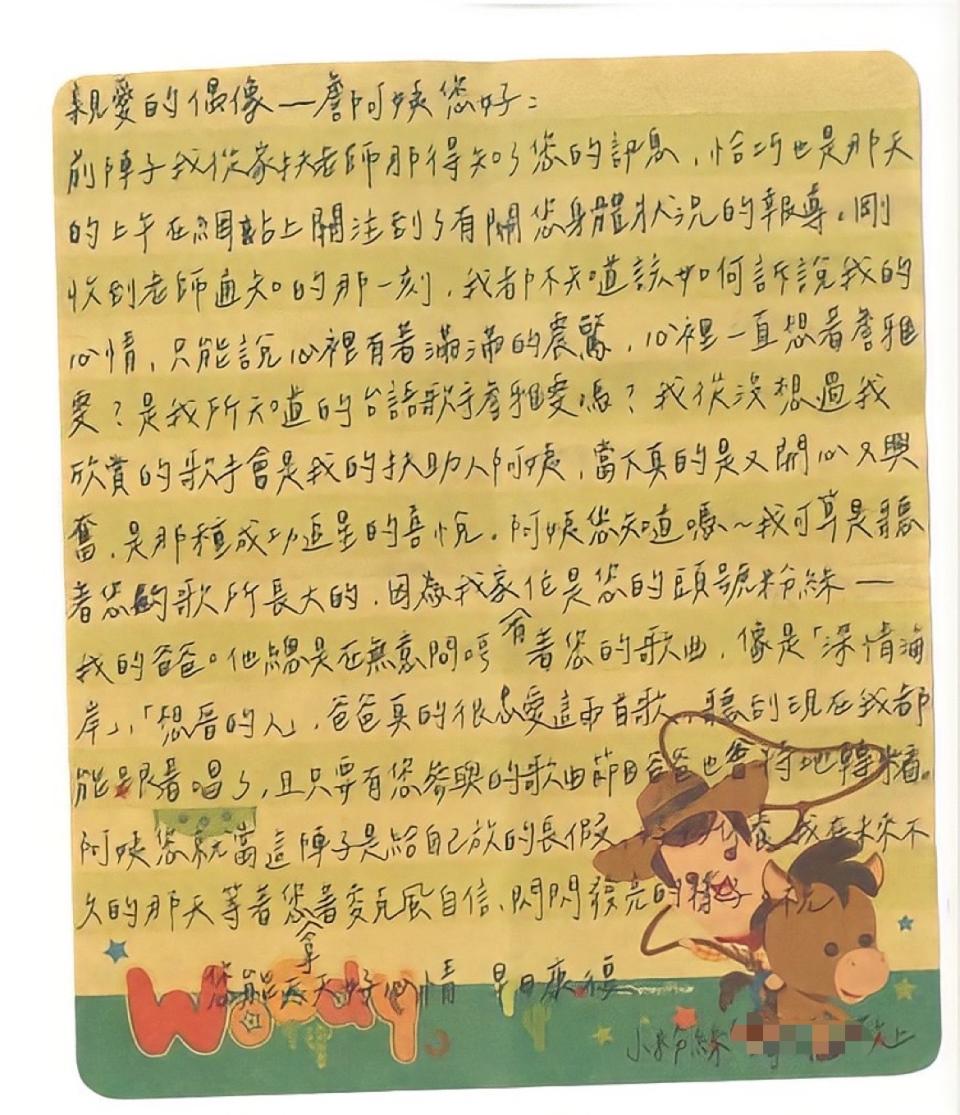 親愛的偶像—詹阿姨您好：
前陣子我從家扶老師那得知了您的訊息，恰巧也是那天
的上午在網站上關注到了有關您身體狀況的報導。剛
收到老師通知的那一刻，我都不知道該如何訴說我的
心情，只能說心裡有著滿滿的震驚，心裡一直想著詹雅
雯？是我所知道的台語歌手詹雅雯嗎？我從沒想過我
欣賞的歌手會是我的扶助人阿姨，當下真的是又開心又興
奮，是那種成功追星的喜悅。阿姨您知道嗎～我可算是聽
著您的歌所長大的，因為我家住是您的頭號粉絲—
我的爸爸。他總是在無意間哼有著您的歌曲，像是「深情海
岸」、「想厝的人」，爸爸真的很愛這兩首歌，聽到現在我都
能跟著唱了，且只要有您參與的歌曲節目爸爸也會特地轉來看。
阿姨您就當這陣子是給自己放的長假，好好休養，我在未來不
久的那天等著您拿著麥克風自信、閃閃發亮的樣子。祝
您能天天好心情 早日康復
小粉絲 敬上
Woody